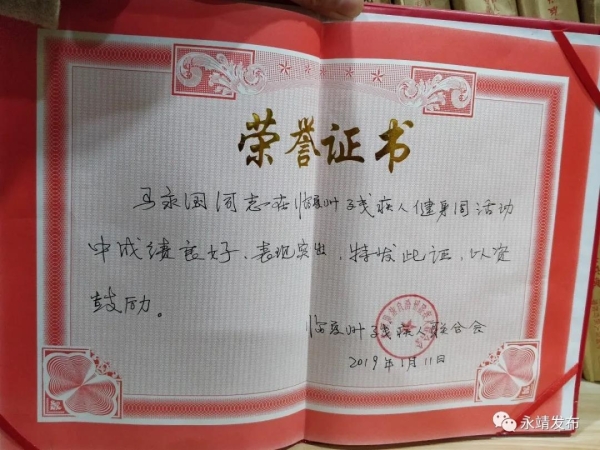 荣誉证书
马永国同志在临夏州残疾人健身周活动
中成绩良好、表现突出，特发此证，以资
鼓励。
临夏州残疾人联合会
2019年1月11日
永靖发布